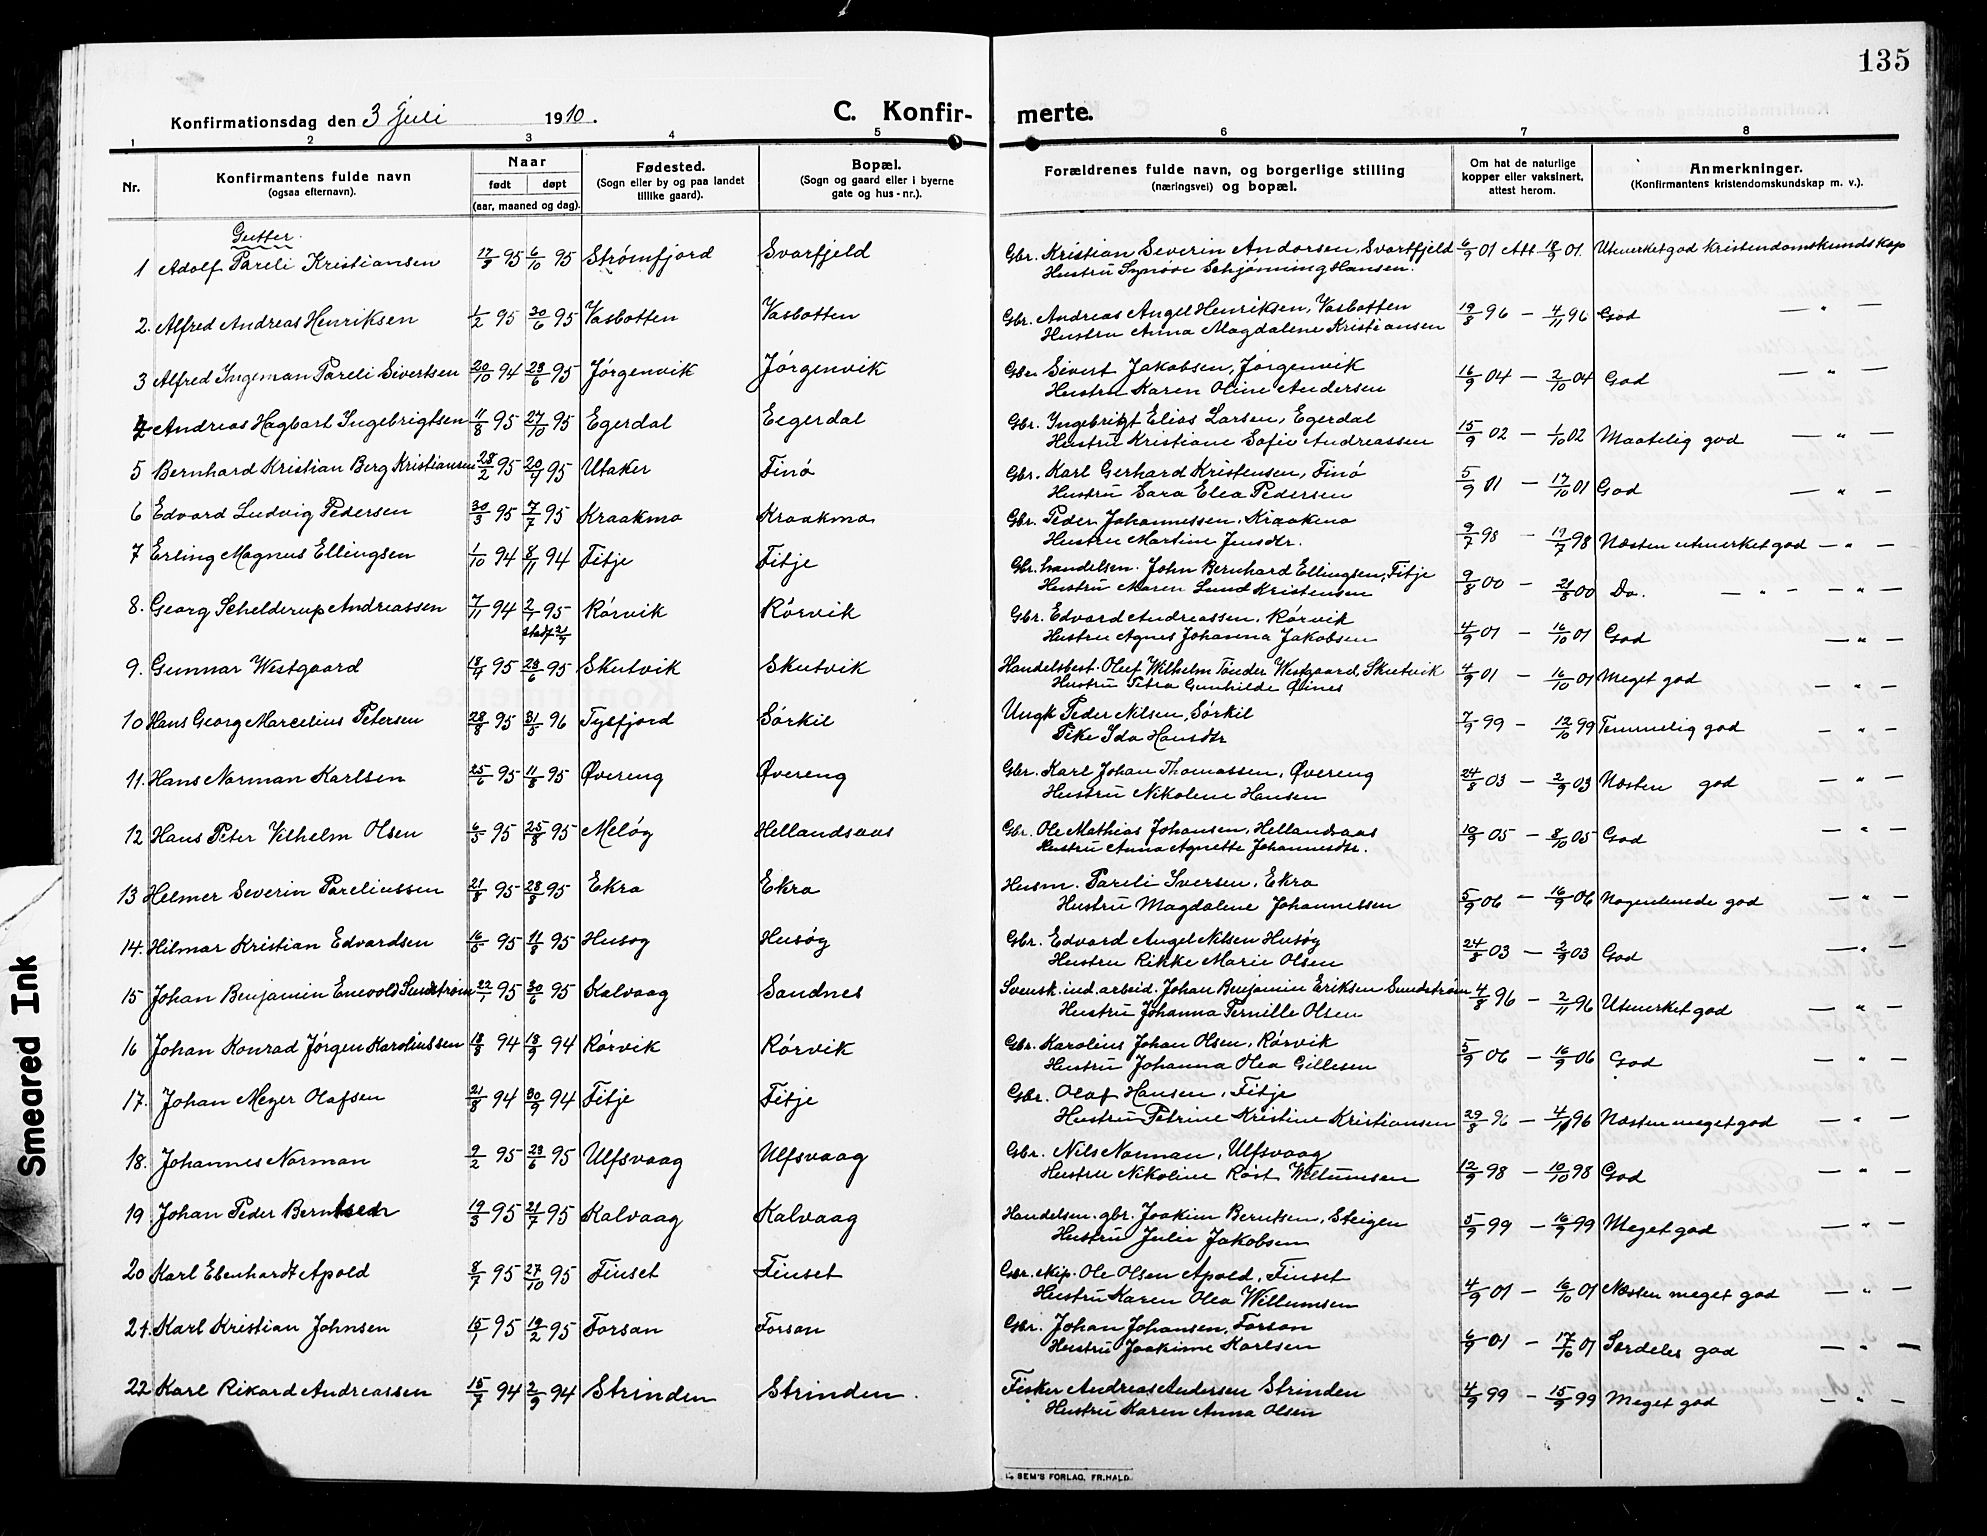 135
Konfirmationsdag den 3 Juli 1910.
C. Konfir-
merte.
1 2 3 4 5 6 7 8
Nr.
Konfirmantens fulde navn
(ogsaa efternavn).
Naar
født døpt
(aar, maaned og dag).
Fødested.
(Sogn eller by og paa landet
tillike gaard).
Bopæl.
(Sogn og gaard eller i byerne
gate og hus-nr.).
Forældrenes fulde navn, og borgerlige stilling
(næringsvei) og bopæl.
Om hat de naturlige
kopper eller vaksinert,
attest herom.
Anmerkninger.
(Konfirmantens kristendomskundskap m. v.).
Gutter.
1 Adolf Pareli Kristiansen 17/9 95 6/10 95 Strømfjord Svarfjeld Gbr. Kristian Severin Andorsen, Svartfjeld 6/9 01 Att 18/9 01. Utmerket god kristendomskundskap
Hustru Synøve Schjønning Hansen.
2. Alfred Andreas Henriksen 1/2 95 30/6 95 Vasbotten Vasbotten Gbr. Andreas Angel Henriksen, Vasbotten 19/8 96 — 4/11 96 God — " —
Hustru Anna Magdalene Kristiansen
3 Alfred Ingeman Pareli Sivertsen 20/10 94 23/6 95 Jørgenvik Jørgenvik Gbr. Sivert Jakobsen, Jørgenvik 16/9 04 — 2/10 04 God — " —
Hustru Karen Oline Andersen
4 Andreas Hagbart Ingebrigtsen 11/8 95 27/10 95 Egerdal Eegerdal Gbr. Ingebrigt Elias Larsen, Egerdal 15/9 02 — 1/10 02 Maatelig god — " —
Hustru Kristiane Sofie Andreassen
5 Bernhard Kristian Berg Kristiansen 28/2 95 20/9 95 Utaker Finø Gbr. Karl Gerhard Kristensen, Finø 5/9 01 — 17/10 01 God — " —
Hustru Sara Elea Pedersen
6 Edvard Ludvig Pedersen 30/3 95 7/7 95 Kraakmo Kraakmo Gbr. Peder Johannessen, Kraakmo 9/7 98 — 19/7 98 Næsten utmerket god — " —
Hustru Martine Jensdtr.
7 Erling Magnus Ellingsen 1/10 94 8/11 94 Fitje Fitje Gbr. handelsm. John Bernhard Ellingsen, Fitje 9/8 00 — 21/8 00 Do. — " — — " —
Hustru Maren Lund Kristensen
8. Georg Schelderup Andreassen 7/11 94 2/7 95 Rørvik Rørvik Gbr. Edvard Andreassen, Rørvik 4/9 01 — 16/10 01 God — " —
stadf 21/7
Hustru Agnes Johanna Jakobsen
9. Gunnar Westgaard 18/4 95 23/6 95 Skutvik Skutvik Handelsbest. Oluf Wilhelm Tønder Westgaard, Skutvik 4/9 01 — 16/10 01 Meget god — " —
Hustru Petra Gunhilde Øines
10 Hans Georg Marcelius Petersen 28/8 95 31/5 96 Tysfjord Sørkil Ungk Peder Nilsen, Sørkil 7/9 99 — 12/10 99 Temmelig god — " —
Pike Ida Hansdtr
11. Hans Norman Karlsen 25/6 95 11/8 95 Øvereng Øvereng Gbr. Karl Johan Thomassen, Øvereng 24/8 03 — 2/9 03 Næsten god — " —
Hustru Nikolene Hansen
12 Hans Peter Vilhelm Olsen 6/5 95 25/8 95 Meløy Hellandsaas Gbr. Ole Mathias Johansen, Hellandsaas 10/9 05 — 8/10 05 God — " —
Hustru Anna Agnette Johannesdtr.
13 Helmer Severin Pareliussen 21/8 95 28/8 95 Ekra Ekra Husm. Pareli Iversen, Ekra 5/9 06 — 16/9 06 Nogenlunde god — " —
Hustru Magdalene Johannessen
14. Hilmar Kristian Edvardsen 16/5 95 11/8 95 Husøy Husøy Gbr. Edvard Angel Nilsen Husøy 24/8 03 — 2/9 03 God — " —
Hustru Rikke Marie Olsen
15 Johan Benjamin Enevold Sundstrøm 22/1 95 30/6 95 Kalvaag Sandnes Svensk. ind. arbeid. Johan Benjamin Eriksen Sundstrøm 4/8 96 — 2/11 96 Utmerket god — " —
Hustru Johanna Pernille Olsen
16 Johan Konrad Jørgen Karoliussen 18/8 94 18/9 94 Rørvik Rørvik Gbr. Karolius Johan Olsen, Rørvik 5/9 06 — 16/9 06 God — " —
Hustru Johanna Olea Gillesen
17. Johan Meyer Olafsen 21/8 94 30/9 94 Fitje Fitje Gbr. Olaf Hansen, Fitje
Hustru Petrine Kristine Kristiansen 29/8 96 — 96 Næsten meget god — " —
18. Johannes Norman 9/2 95 23/6 95 Ulfsvaag Ulfsvaag Gbr. Nils Norman, Ulfsvaag
Hustru Nikoline Røst Willumsen 12/9 98 — 10/10 98 God — " —
19 Johan Peder Berntsen 19/3 95 21/7 95 Kalvaag Kalvaag Handelsm. gbr. Joakim Berntsen, Steigen 5/9 99 — 16/9 99 Meget god — " —
Hustru Julie Jakobsen
20 Karl Ebenhardt Apold 8/7 95 27/10 95 Finset Finset Gbr. skip. Ole Olsen Apold, Finset 4/9 01 — 16/10 01 Næsten meget god — " —
Hustru Karen Olea Willumsen
21. Karl Kristian Johnsen 15/1 95 19/2 95 Forsan Forsan Gbr. Johan Johansen, Forsan 6/9 01 — 17/10 01 Særdeles god — " —
Hustru Joakime Karlsen
22 Karl Rikard Andreassen 15/7 94 2/9 94 Strinden Strinden. Fisker Andreas Andersen Strinden 4/9 99 — 15/9 99 Meget god — " —
Hustru Karen Anna Olsen
SEM'S FORLAG, FR.HALD
Smeared Ink